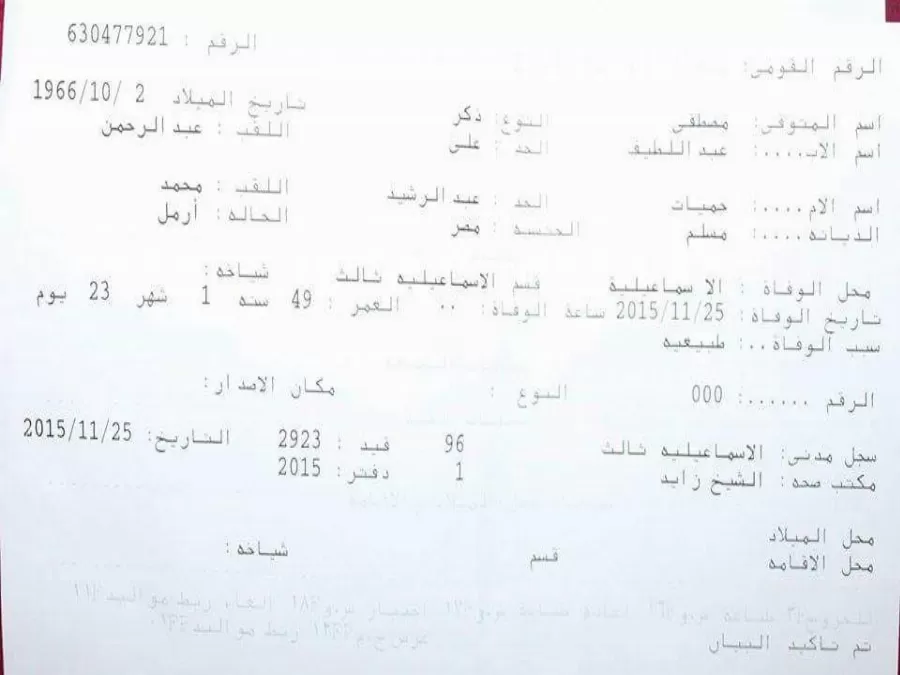 الرقم : 630477921
الرقم القومى:
تاريخ الميلاد 2 /1966/10
اسم المتوفى: مصطفى النوع: ذكر اللقب : عبد الرحمن
اسم الاب....: عبد اللطيف الجد : على
اسم الام....: الجد : عبد الرشيد اللقب : محمد
الديانه....: مسلم الجنسه : مصر الحاله: أرمل
محل الوفاة : الاسماعيلية قسم الاسماعيليه ثالث شياخه:
تاريخ الوفاة: 2015/11/25 ساعة الوفاة: .. العمر : 49 سنه 1 شهر 23 يوم
سبب الوفاة..: طبيعيه
الرقم ......: 000 النوع : مكان الاصدار:
سجل مدنى: الاسماعيليه ثالث 96 قيد : 2923 التاريخ: 2015/11/25
مكتب صحه : الشيخ زايد 1 دفتر: 2015
محل الميلاد
محل الاقامه قسم شياخه:
تم تاكيد البيان